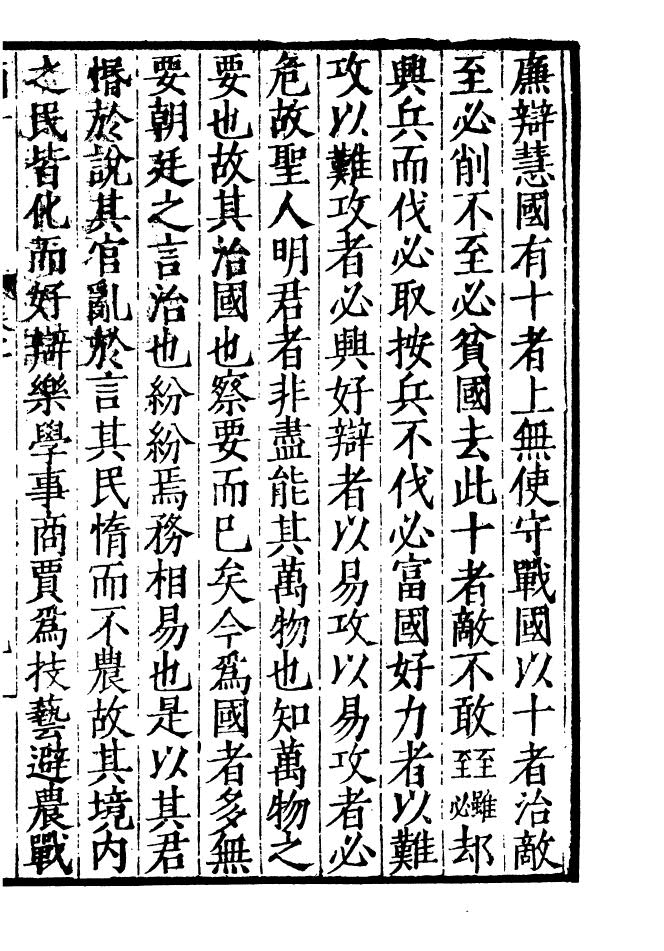 廉辯慧國有十者上無使守戰國以十者治敵
至必削不至必貧國去此十者敵不敢至雖至必却
興兵而伐必取按兵不伐必富國好力者以難
攻以難攻者必興好辯者以易攻以易攻者必
危故聖人明君者非盡能其萬物也知萬物之
要也故其治國也察要而已矣今爲國者多無
要朝廷之言治也紛紛焉務相易也是以其君
惽於說其官亂於言其民惰而不農故其境內
之民皆化而好辯樂學事商賈爲技藝避農戰